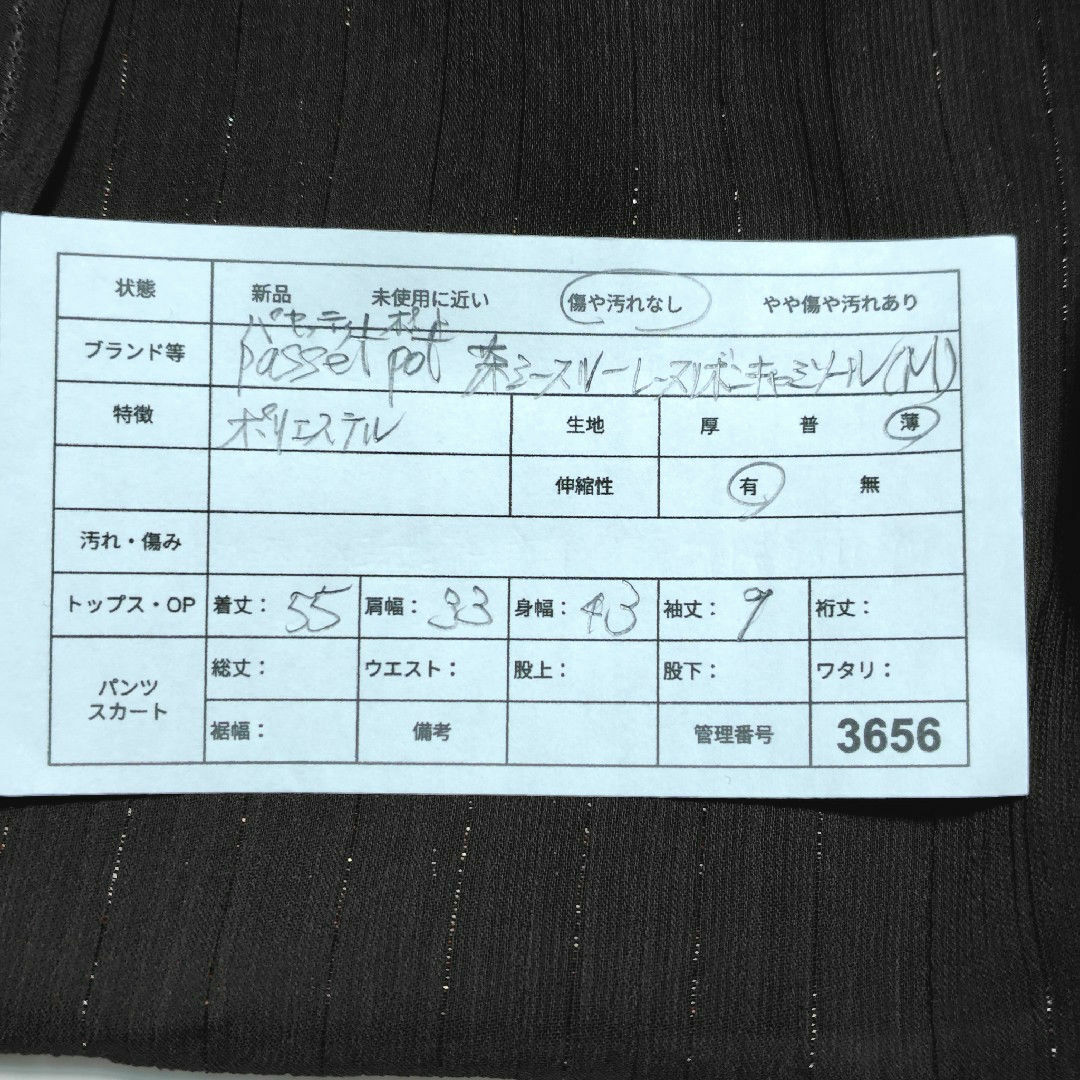 状態 新品 未使用に近い 傷や汚れなし やや傷や汚れあり
パセッティ ポット
ブランド等 passet pot 茶シースルーレースリボンキャミソール(M)
特徴 ポリエステル 生地 厚 普 薄
伸縮性 有 無
汚れ・傷み
トップス・OP 着丈: 55 肩幅: 33 身幅: 43 袖丈: 9 裄丈:
パンツ スカート 総丈: ウエスト: 股上: 股下: ワタリ:
裾幅: 備考 管理番号 3656